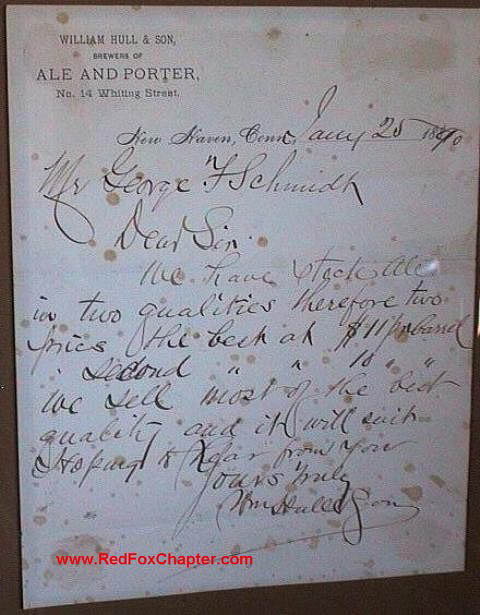 WILLIAM HULL & SON,
BREWERS OF
ALE AND PORTER,
No. 14 Whiting Street.
New Haven, Conn. Jany 25 1890
Mr George F Schmidt
Dear Sir.
We have Stock Ale
in two qualities therefore two
prices the best at $11 pr barrel
" second " " 10 " "
We sell most of the best
quality and it will suit
Hoping to hear from you
Yours truly
Wm Hull & Son
www.RedFoxChapter.com